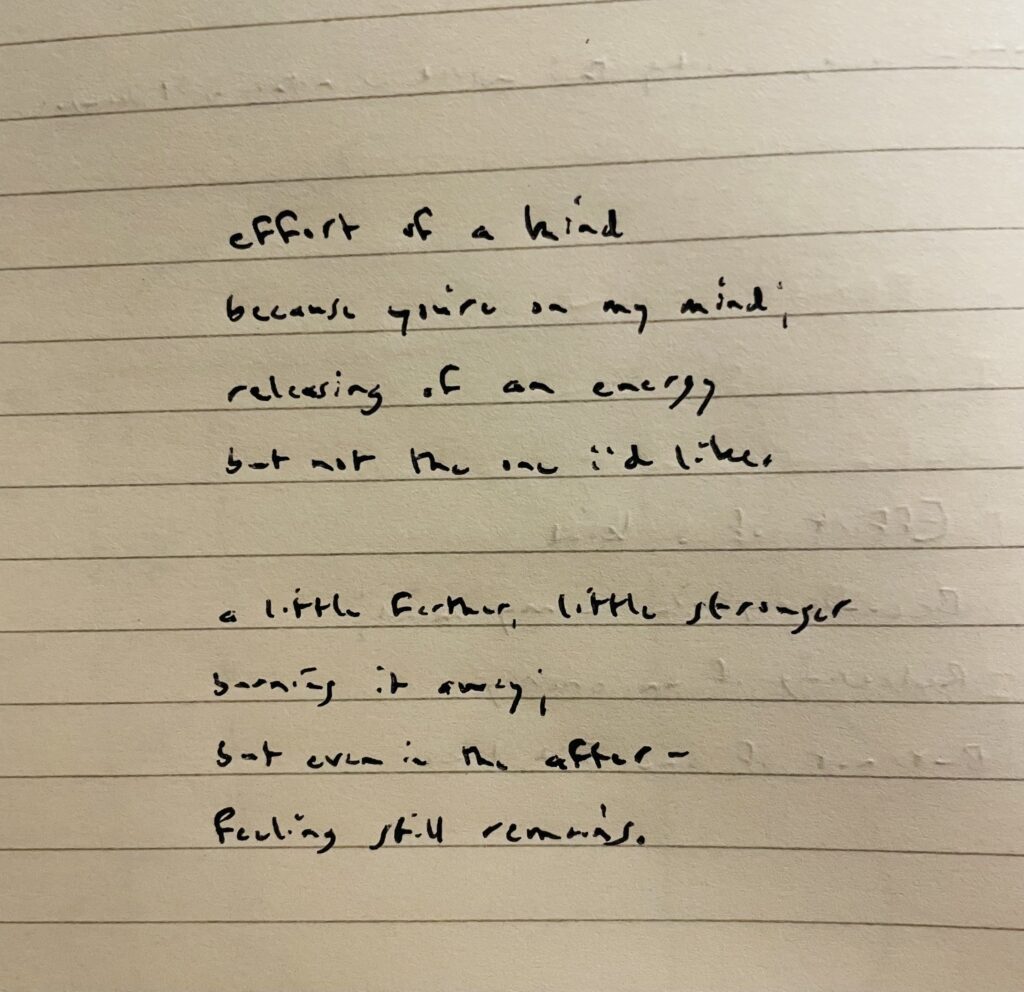 effort of a kind
because you're on my mind;
releasing of an energy
but not the one i'd like.
a little farther, little stronger
burning it away;
but even in the after-
feeling still remains.